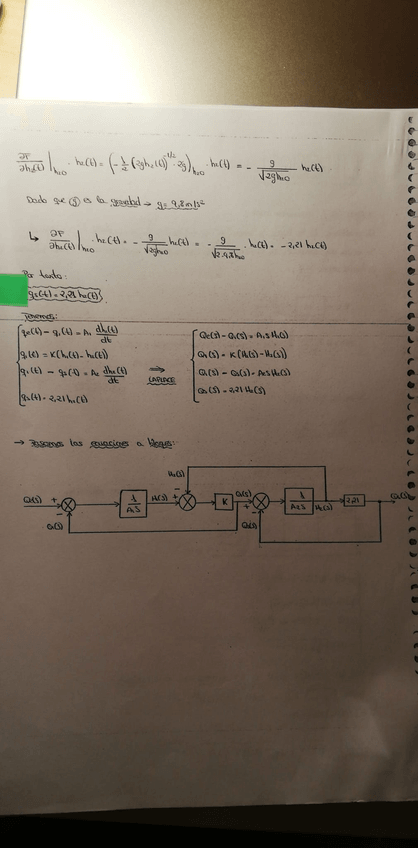 ∂F/∂h₂(t)|ₕ₂₀ · h₂(t) = (-1/2 (2gh₂(t))^-1/2 · 2g)ₕ₂₀ · h₂(t) = - g/√2gh₂₀ h₂(t)
Dado que (g) es la gravedad → g = 9,8 m/s²
↳ ∂F/∂h₂(t)|ₕ₂₀ · h₂(t) = - g/√2gh₂₀ h₂(t) = - g/√2·9,8h₂₀ · h₂(t) = -2,21 h₂(t)
Por tanto:
q₂(t) = 2,21 h₂(t)
Tenemos:
qe(t) - q₁(t) = A₁ dh₁(t)/dt
q₁(t) = K(h₁(t) - h₂(t))
q₁(t) - q₂(t) = A₂ dh₂(t)/dt
q₂(t) = 2,21 h₂(t)
⇒ LAPLACE
Qe(s) - Q₁(s) = A₁S H₁(s)
Q₁(s) = K(H₁(s) - H₂(s))
Q₁(s) - Q₂(s) = A₂S H₂(s)
Q₂(s) = 2,21 H₂(s)
→ Pasamos las ecuaciones a bloques:
H₂(s)
Qe(s) + - 1/A₁S H₁(s) + - K Q₁(s) + - 1/A₂S H₂(s) 2,21 Q₂(s)
Q₁(s) Q₂(s)